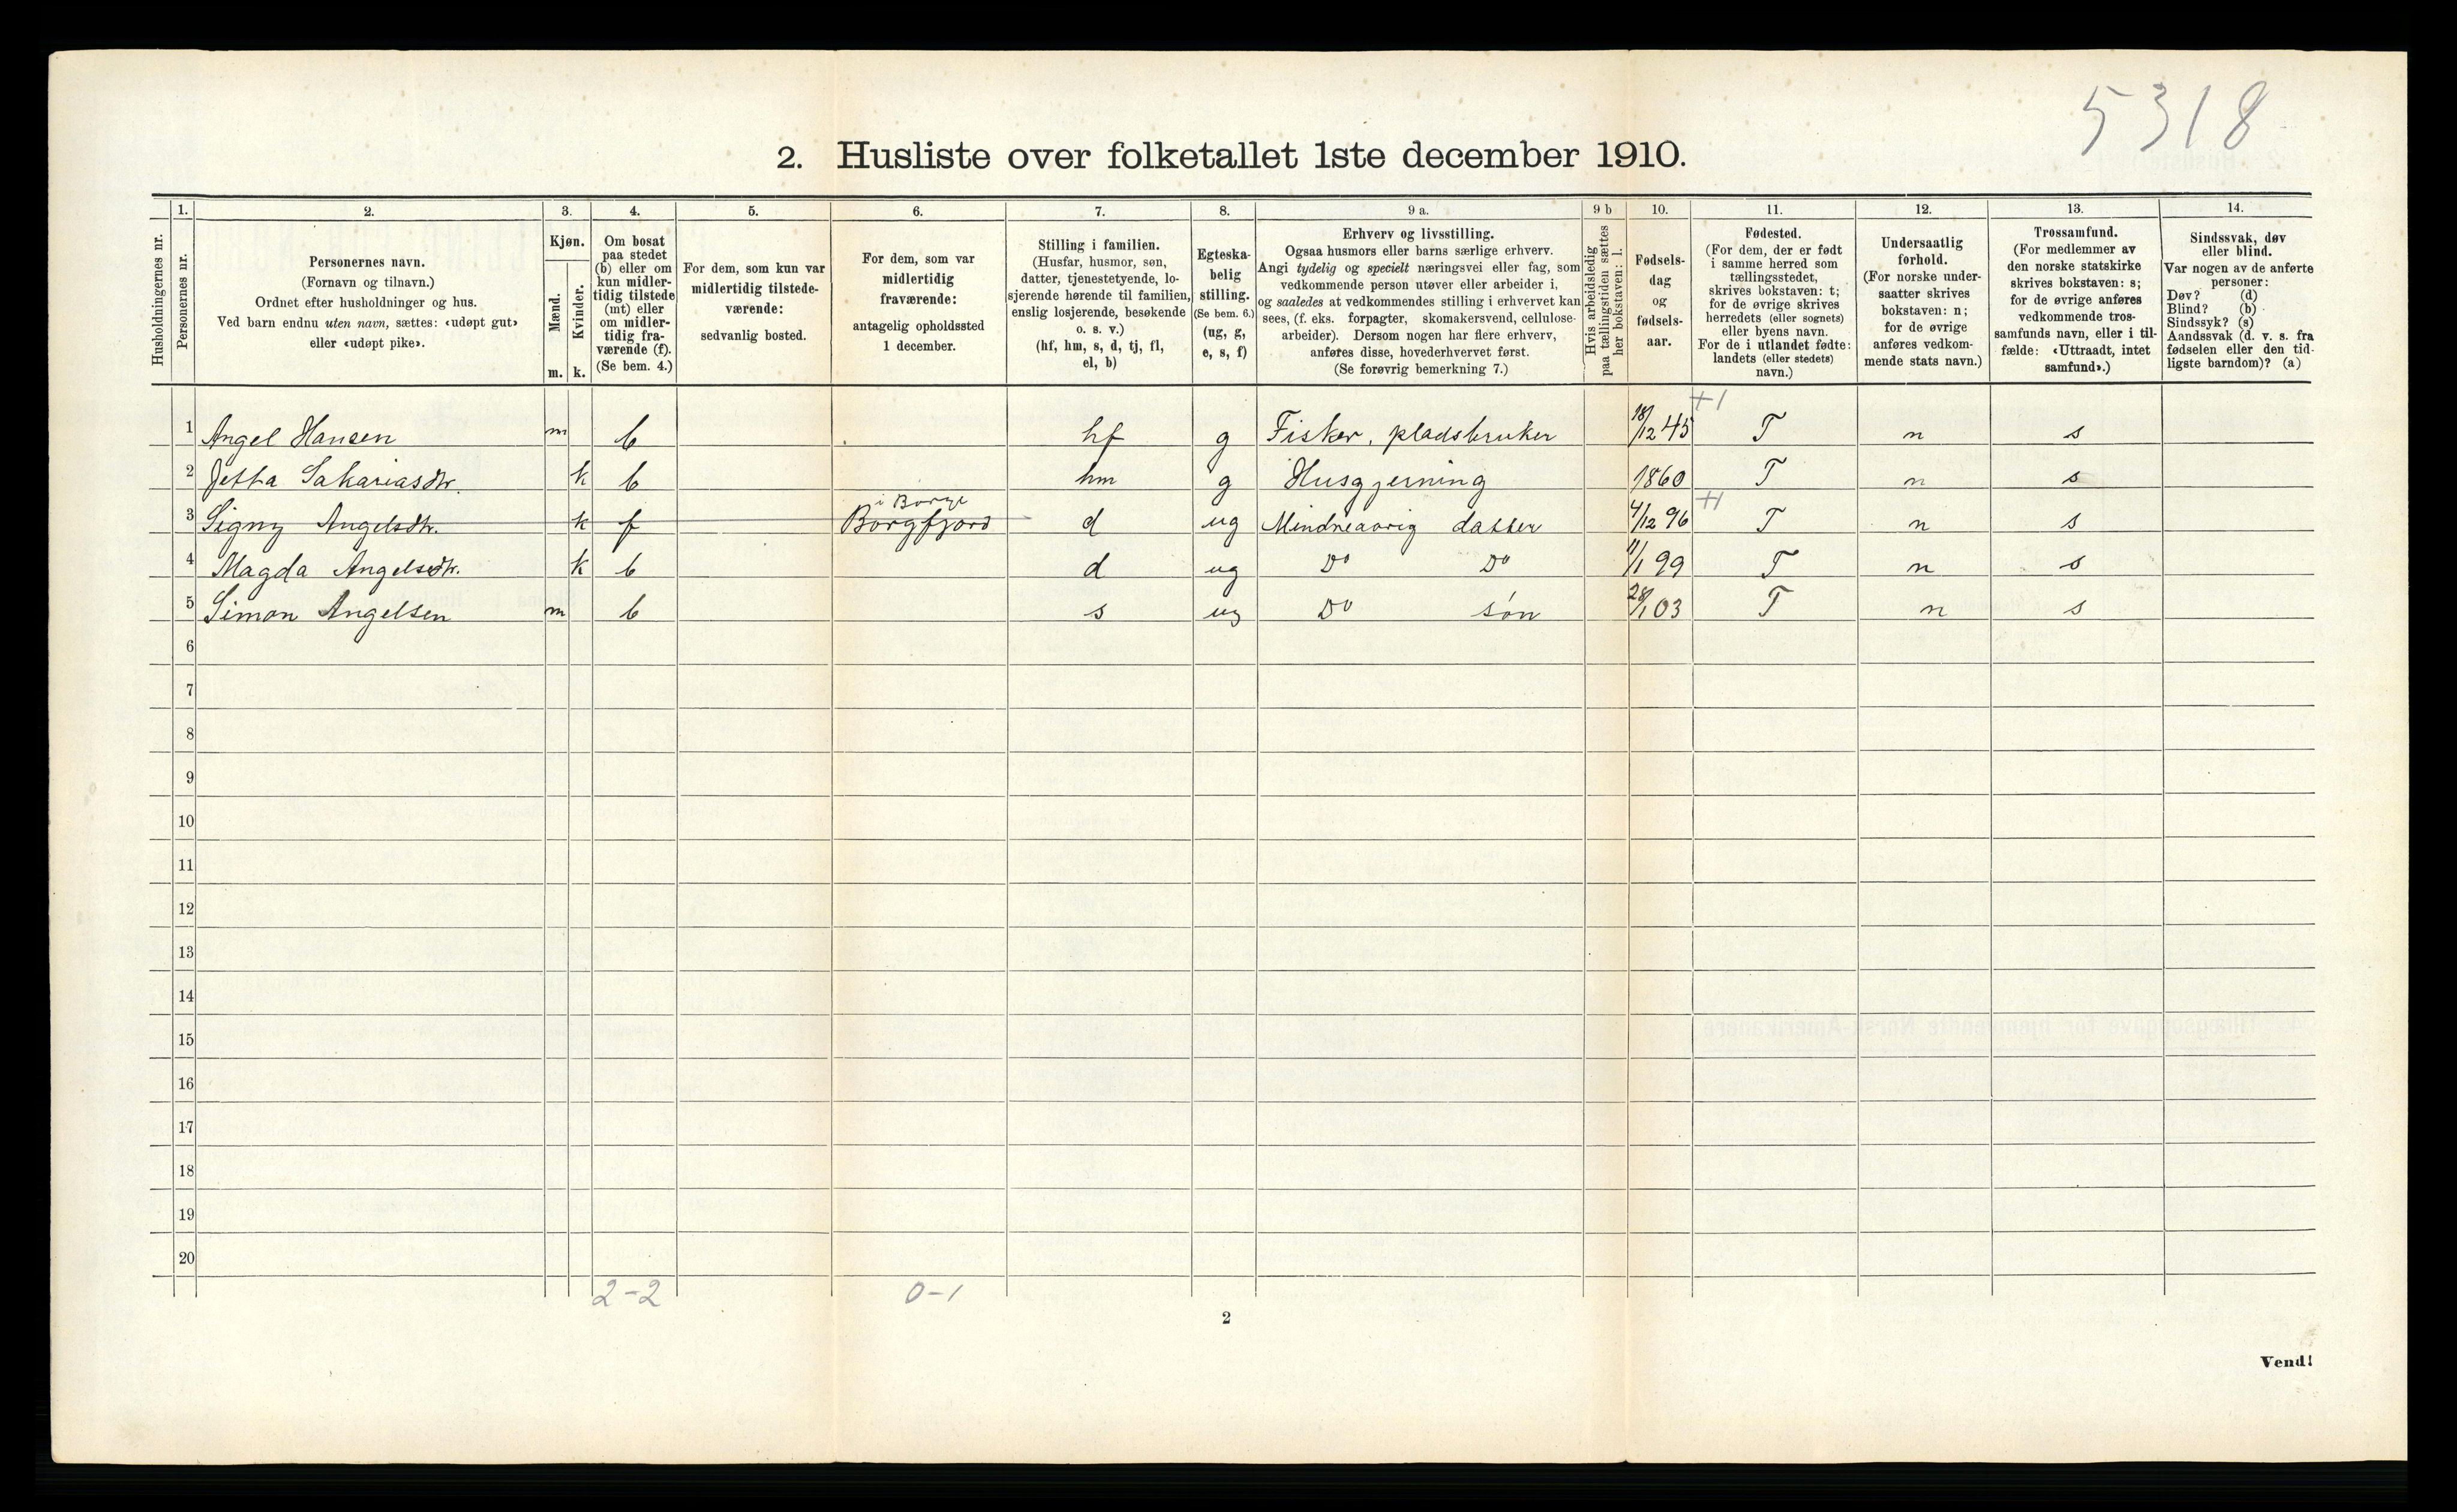 5318
2. Husliste over folketallet 1ste december 1910.
Husholdningernes nr.
1.
Personernes nr.
2.
Personernes navn.
(Fornavn og tilnavn.)
Ordnet efter husholdninger og hus.
Ved barn endnu uten navn, sættes: «udøpt gut»
eller «udøpt pike».
3.
Kjøn.
Mænd.
Kvinder.
m. k.
4.
Om bosat
paa stedet
(b) eller om
kun midler-
tidig tilstede
(mt) eller
om midler-
tidig fra-
værende (f).
(Se bem. 4.)
5.
For dem, som kun var
midlertidig tilstede-
værende:
sedvanlig bosted.
6.
For dem, som var
midlertidig
fraværende:
antagelig opholdssted
1 december.
7.
Stilling i familien.
(Husfar, husmor, søn,
datter, tjenestetyende, lo-
sjerende hørende til familien,
enslig losjerende, besøkende
o. s. v.)
(hf, hm, s, d, tj, fl,
el, b)
8.
Egteska-
belig
stilling.
(Se bem. 6.)
(ug, g,
e, s, f)
9 a.
Erhverv og livsstilling.
Ogsaa husmors eller barns særlige erhverv.
Angi tydelig og specielt næringsvei eller fag, som
vedkommende person utøver eller arbeider i,
og saaledes at vedkommendes stilling i erhvervet kan
sees, (f. eks. forpagter, skomakersvend, cellulose-
arbeider). Dersom nogen har flere erhverv,
anføres disse, hovederhvervet først.
(Se forøvrig bemerkning 7.)
9 b
Hvis arbeidsledig
paa tællingstiden sættes
her bokstaven: l.
10.
Fødsels-
dag
og
fødsels-
aar.
11.
Fødested.
(For dem, der er født
i samme herred som
tællingsstedet,
skrives bokstaven: t;
for de øvrige skrives
herredets (eller sognets)
eller byens navn.
For de i utlandet fødte:
landets (eller stedets)
navn.)
12.
Undersaatlig
forhold.
(For norske under-
saatter skrives
bokstaven: n;
for de øvrige
anføres vedkom-
mende stats navn.)
13.
Trossamfund.
(For medlemmer av
den norske statskirke
skrives bokstaven: s;
for de øvrige anføres
vedkommende tros-
samfunds navn, eller i til-
fælde: «Uttraadt, intet
samfund».)
14.
Sindssvak, døv
eller blind.
Var nogen av de anførte
personer:
Døv? (d)
Blind? (b)
Sindssyk? (s)
Aandssvak (d. v. s. fra
fødselen eller den tid-
ligste barndom)? (a)
+1
1 Angel Hansen m b hf g Fisker, pladsbruker 18/12 45 T n s
2 Jetta Sakariasdtr. k b hm g Husgjerning 1860 T n s
i Borge +1
3 Signy Angelsdtr. k f Borgfjord d ug Mindreaarig datter 4/12 96 T n s
4 Magda Angelsdtr. k b d ug Do Do 11/1 99 T n s
5 Simon Angelsen m b s ug Do søn 28/1 03 T n s
6
7
8
9
10
11
12
13
14
15
16
17
18
19
20
2-2 0-1
2
Vend!